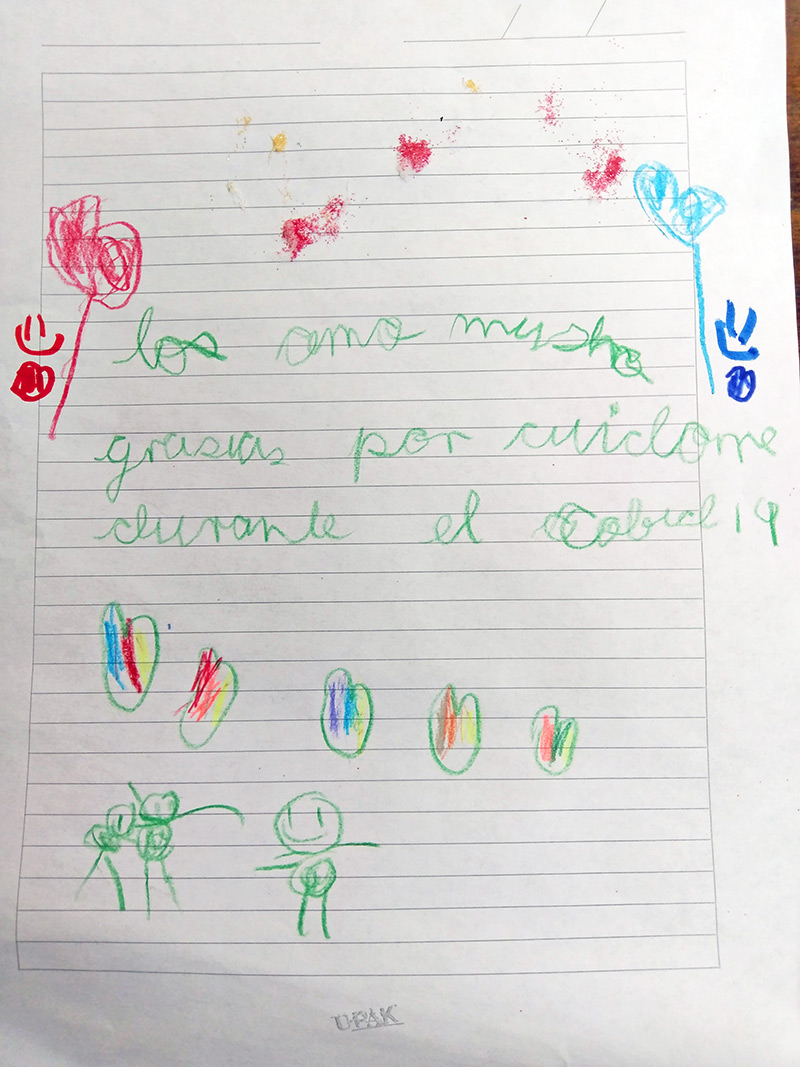 los amo musho
grasias por cuidarme
durante el Cobid 19
UPAK